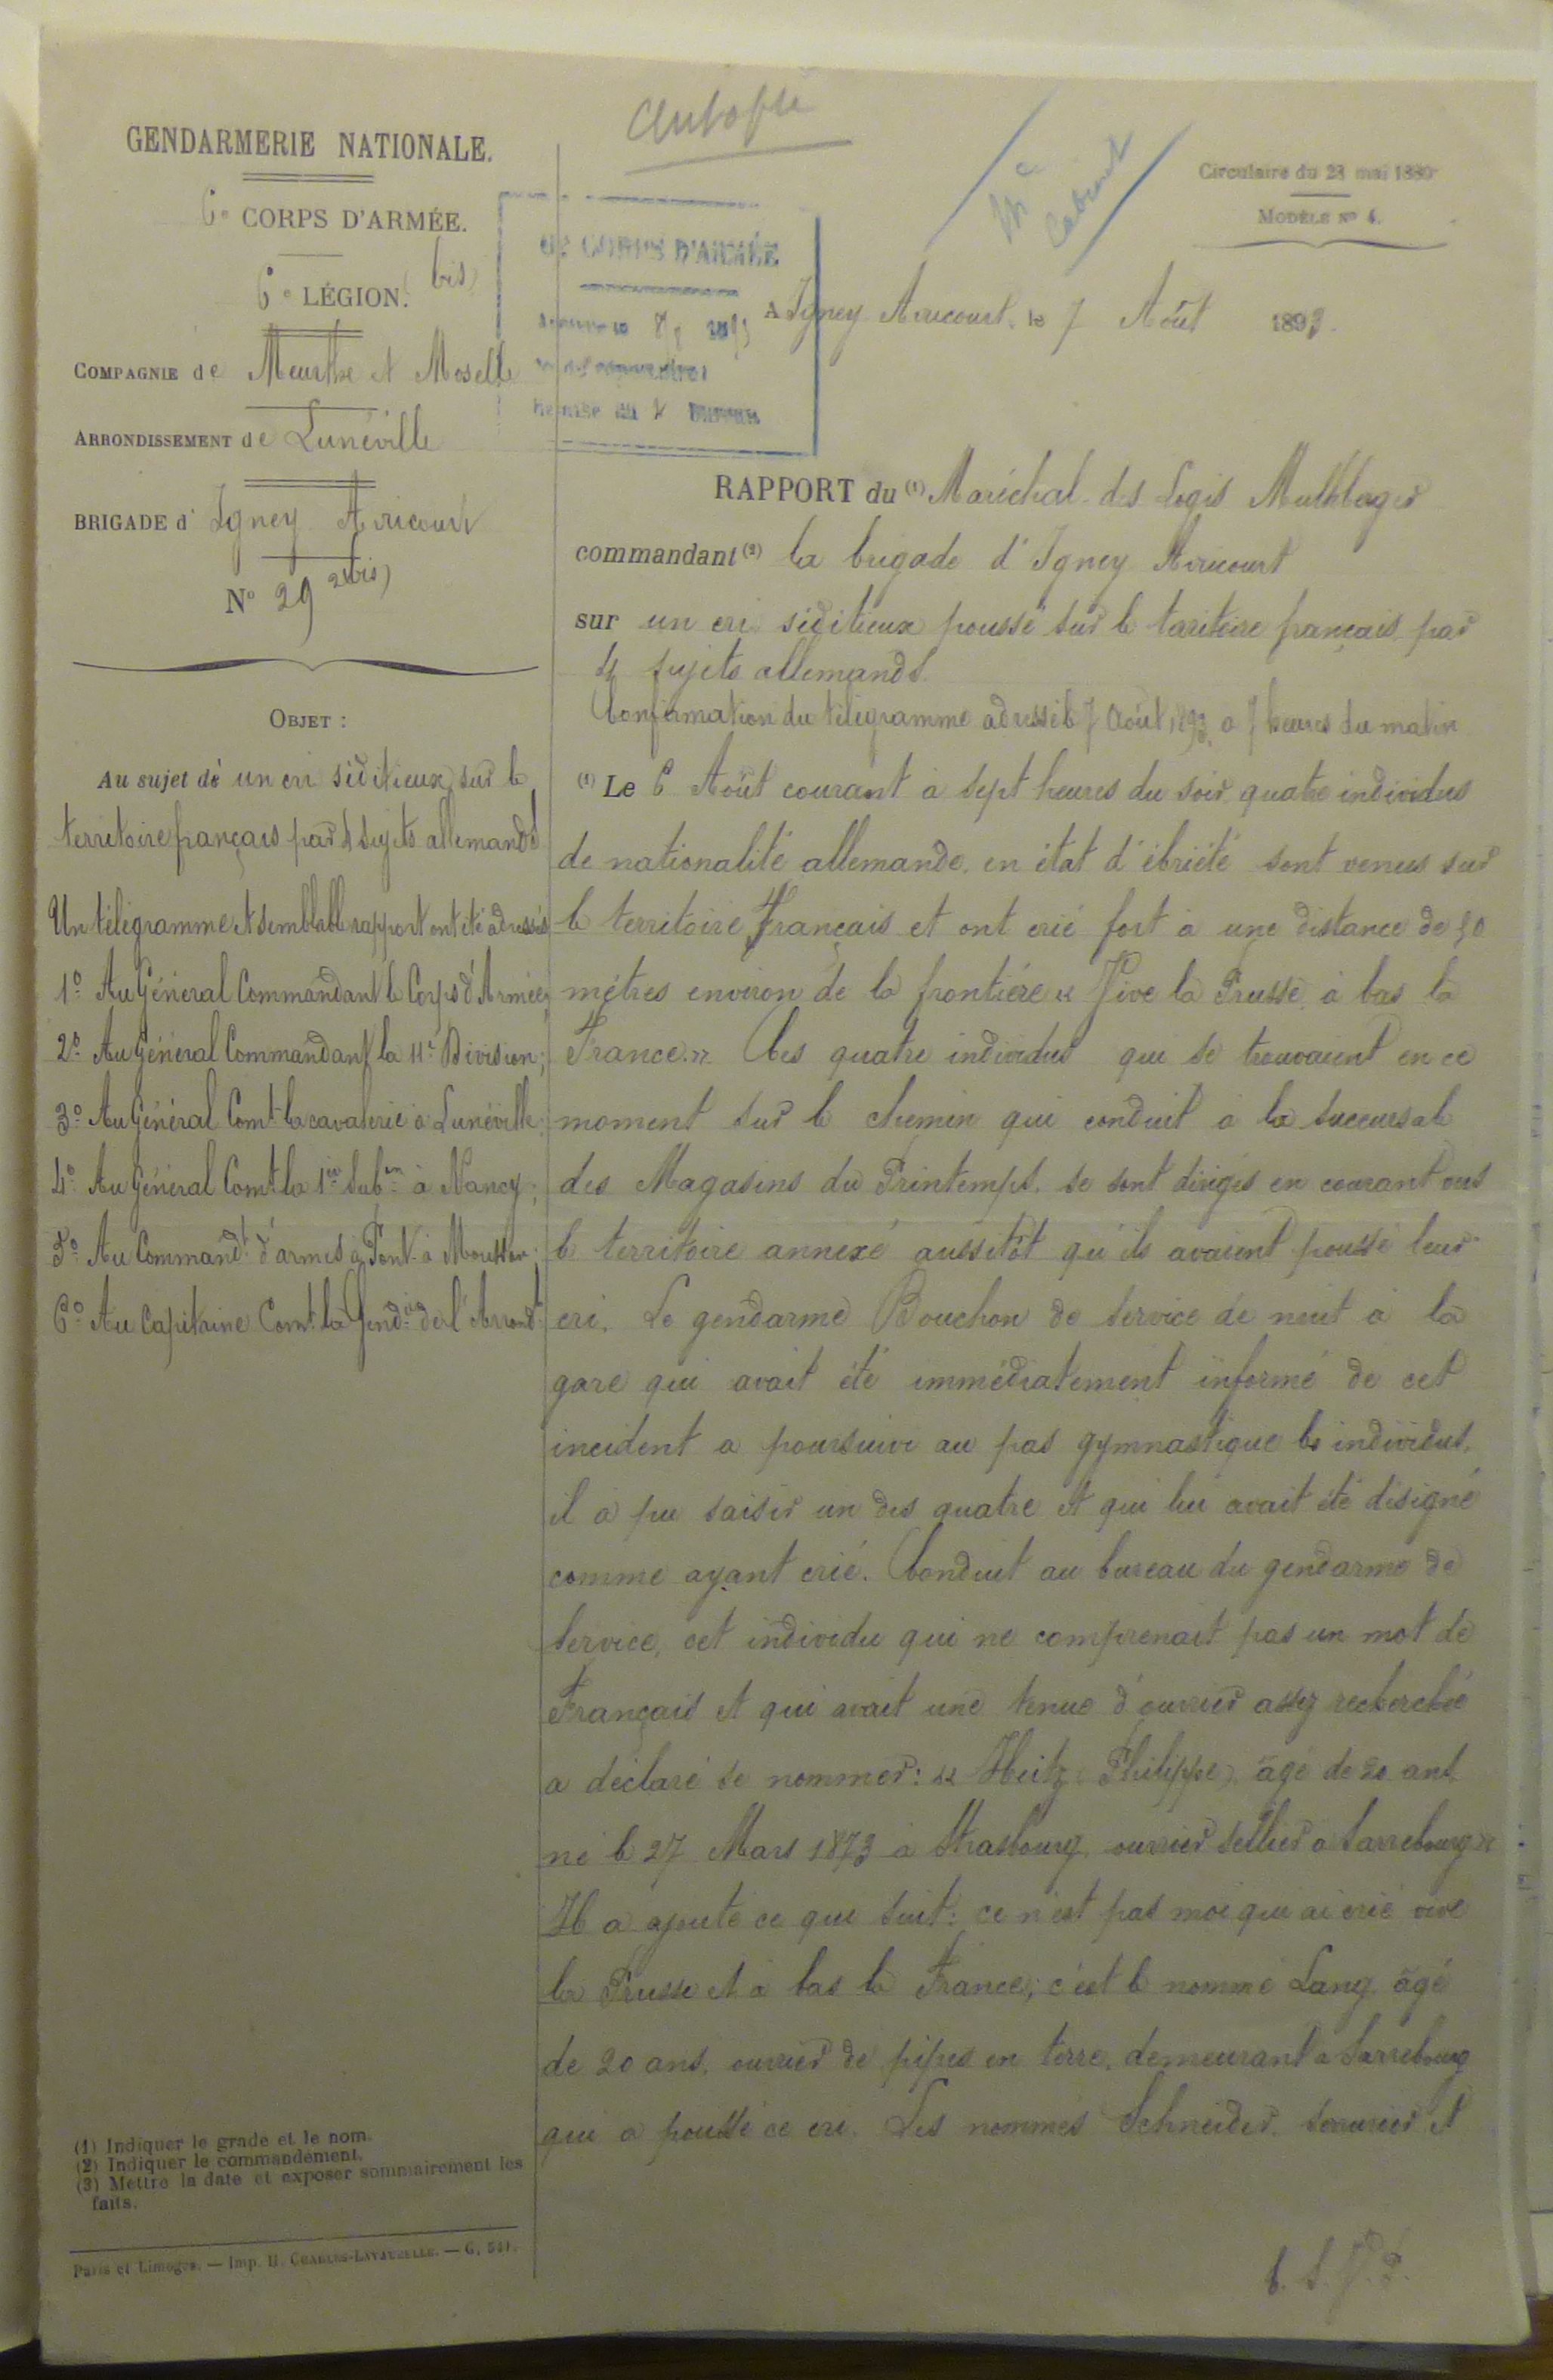 GENDARMERIE NATIONALE.
6e CORPS D'ARMÉE.
6e LÉGION. (bis)
COMPAGNIE de Meurthe et Moselle
ARRONDISSEMENT de Lunéville
BRIGADE d' Igney Avricourt
No 29 2(bis)
OBJET :
Au sujet de un cri séditieux sur le
territoire français par 4 sujets allemands
Un télégramme et semblable rapport ont été adressés
1o Au Général Commandant le Corps d'Armée;
2o Au Général Commandant la 11e Division;
3o Au Général Comt la cavalerie à Lunéville;
4o Au Général Comt la 1re Subon à Nancy;
5o Au Commandt d'armes à Pont à Mousson;
6o Au Capitaine Comt la Gendie de l'Arrondt
(1) Indiquer le grade et le nom.
(2) Indiquer le commandement.
(3) Mettre la date et exposer sommairement les
faits.
Paris et Limoges. — Imp. H. CHARLES-LAVAUZELLE. — G. 541.
Cabinet
Circulaire du 23 mai 1880
MODÈLE No 4.
6e CORPS D'ARMÉE
A Igney Avricourt, le 7 Août 1893.
RAPPORT du (1) Maréchal des Logis
commandant (2) la brigade d'Igney Avricourt
sur un cri séditieux poussé sur le taritoire français par
4 sujets allemands.
Confirmation du télégramme adressé le 7 Août 1893 à 7 heures du matin
(1) Le 6 Août courant à sept heures du soir quatre individus
de nationalité allemande, en état d'ébriété sont venus sur
le territoire Français et ont crié fort à une distance de 50
mètres environ de la frontière « Vive la Prusse, à bas la
France. » Ces quatre individus qui se trouvaient en ce
moment sur le chemin qui conduit à la succursale
des Magasins du Printemps, se sont dirigés en courant vers
le territoire annexé aussitôt qu'ils avaient poussé leur
cri. Le gendarme Bouchon de service de nuit à la
gare qui avait été immédiatement informé de cet
incident a poursuivi au pas gymnastique les individus,
il a pu saisir un des quatre et qui lui avait été désigné
comme ayant crié. Conduit au bureau du gendarme de
service, cet individu qui ne comprenait pas un mot de
Français et qui avait une tenue d'ouvrier assez recherchée
a déclaré se nommer : « Heitz (Philippe), âgé de 20 ans,
né le 27 Mars 1873 à Strasbourg, ouvrier sellier à Sarrebourg »
Il a ajouté ce qui suit : ce n'est pas moi qui ai crié vive
la Prusse et à bas la France; c'est le nommé Lang, âgé
de 20 ans, ouvrier de pipes en terre, demeurant à Sarrebourg
qui a poussé ce cri. Les nommés Schneider, serrurier et